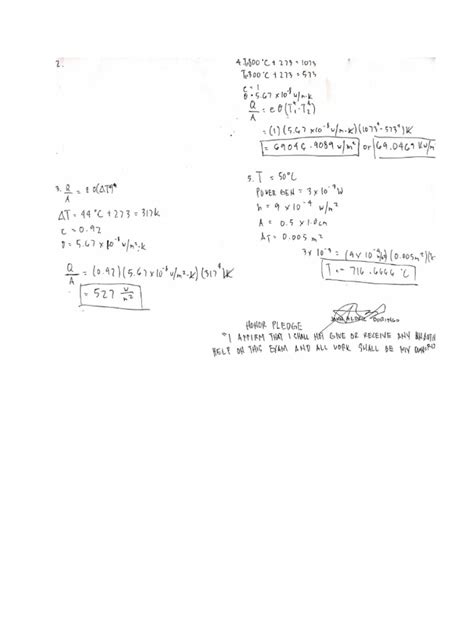 2.
3. Q/A = εσ(ΔT)⁴
ΔT = 44°C + 273 = 317K
ε = 0.92
σ = 5.67 x 10⁻⁸ w/m²·K
Q/A = (0.92)(5.67 x 10⁻⁸ w/m²·K)(317⁴)K
= 527 w/m²
4. T₁ 800°C + 273 = 1073
T₂ 300°C + 273 = 573
ε = 1
σ = 5.67 x 10⁻⁸ w/m·K
Q/A = eσ(T₁⁴-T₂⁴)
= (1)(5.67 x 10⁻⁸ w/m·K)(1073⁴-573⁴)K
= 69046.9089 w/m² or 69.0469 Kw/m
5. T = 50°C
POWER GEN = 3 x 10⁻³ W
h = 9 x 10⁻⁴ w/m²
A = 0.5 x 1.0cm
A_T = 0.005 m²
3 x 10⁻³ = (9 x 10⁻⁴)(0.005m²)
T = -716.6666 °C
HONOR PLEDGE
"I AFFIRM THAT I SHALL NOT GIVE OR RECEIVE ANY
HELP ON THIS EXAM AND ALL WORK SHALL BE MY